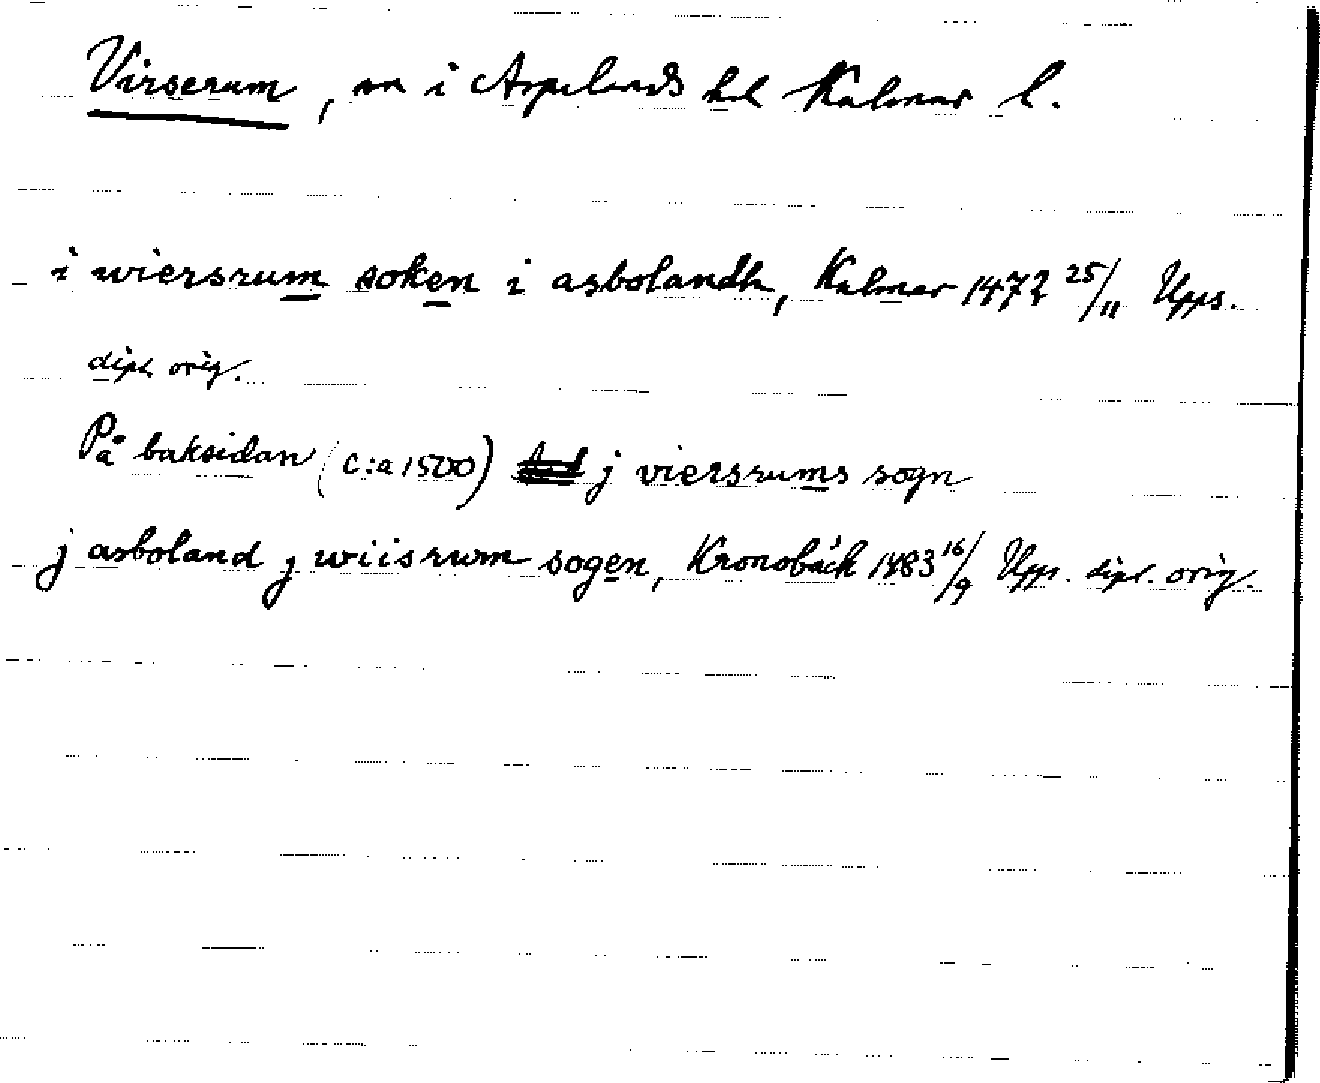 Virserum, sn i Aspelands hd Kalmar l.
i wiersrum soken i asbolandh, Kalmar 1472 25/11 Upps.
dipl. orig.
På baksidan (c:a 1500) j viersrums sogn
j asboland j wiisrum sogen, Kronobäck 1483 16/9 Upps. dipl. orig.